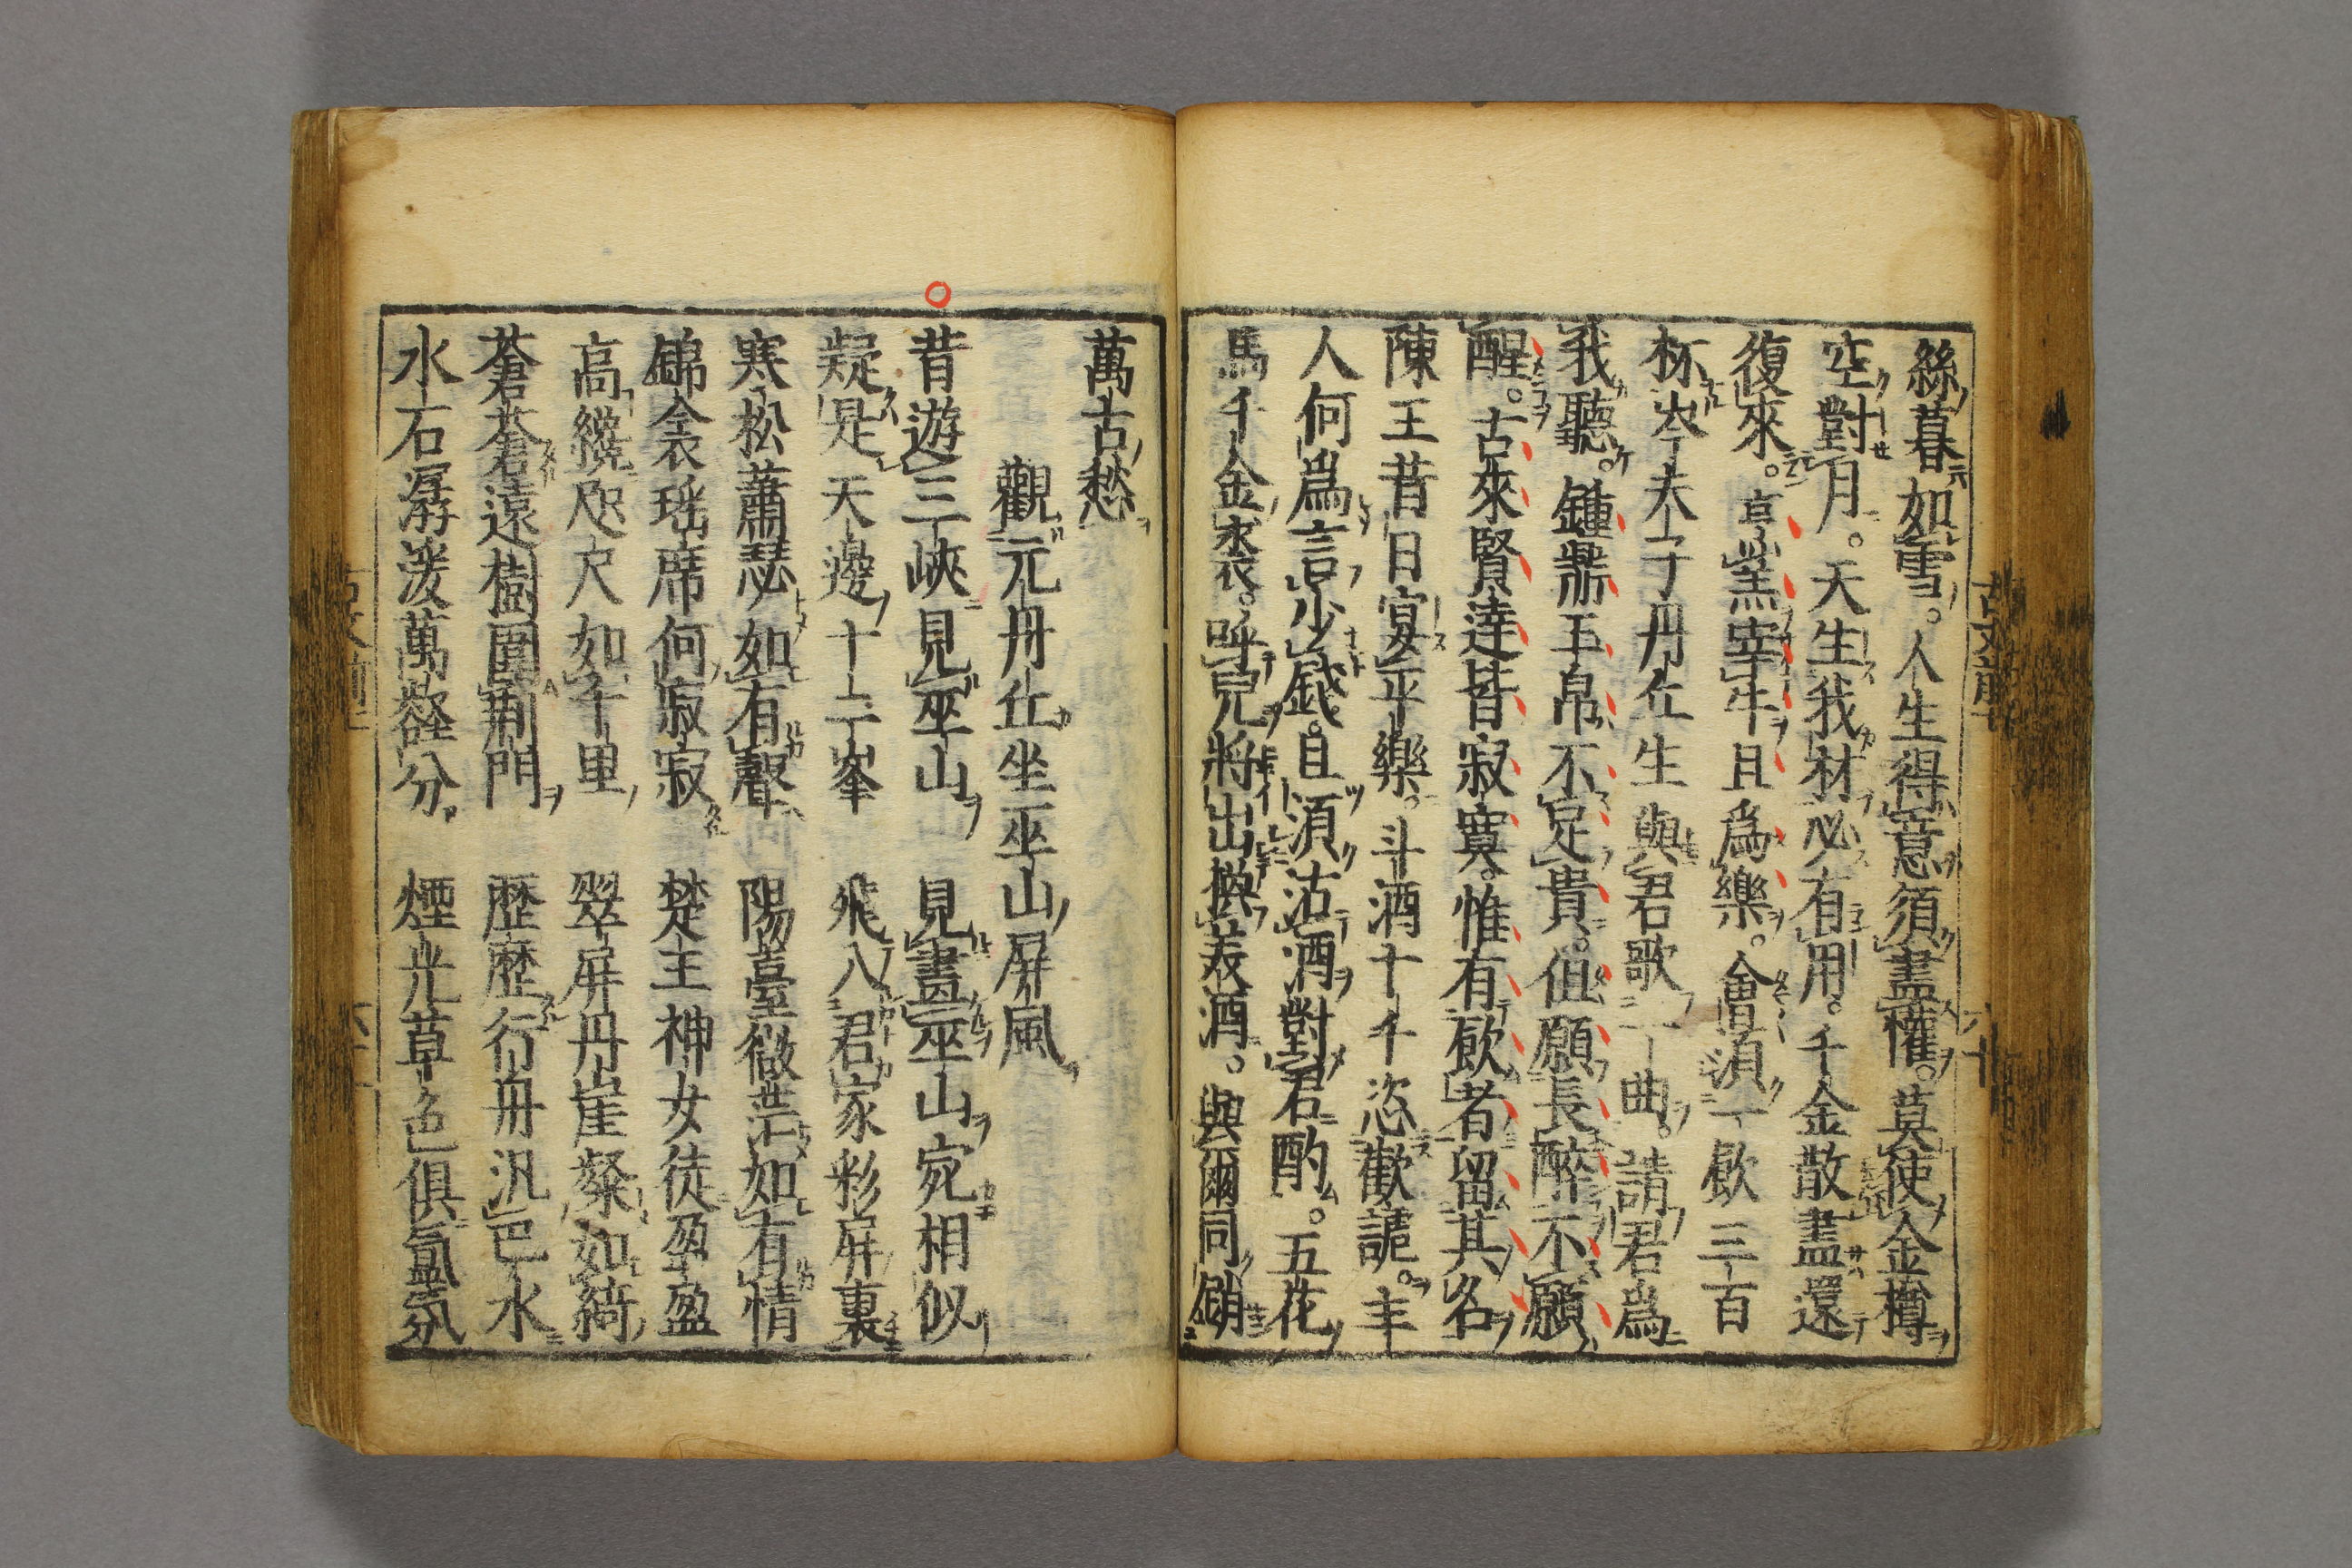 絲暮如雪。人生得意須盡懽。莫使金樽
空對月。天生我材必有用。千金散盡還
復來。烹羔宰牛且爲樂。會湏一飲三百
杯岑夫子丹丘生與君歌一曲。請君爲
我聽。鍾鼎玉帛不足貴。但願長醉不願
醒。古來賢達皆寂寞。惟有飲者留其名
陳王昔日宴平樂。斗酒十千恣歡謔。主
人何爲言少錢。且湏沽酒對君酌。五花
馬千金裘。呼兒將出換美酒。與爾同銷
萬古愁
觀元丹丘坐巫山屏風
昔遊三峽見巫山 見畫巫山宛相似
疑是天邊十二峯 飛入君家彩屏裏
寒松蕭瑟如有聲 陽臺微茫如有情
錦衾瑶席何寂寂 楚王神女徒盈盈
高緩咫尺如千里 翠屏丹崖粲如綺
蒼蒼遠樹圍荆門 歷歷行舟汎巴水
水石潺湲萬壑分 煙光草色俱氳氛